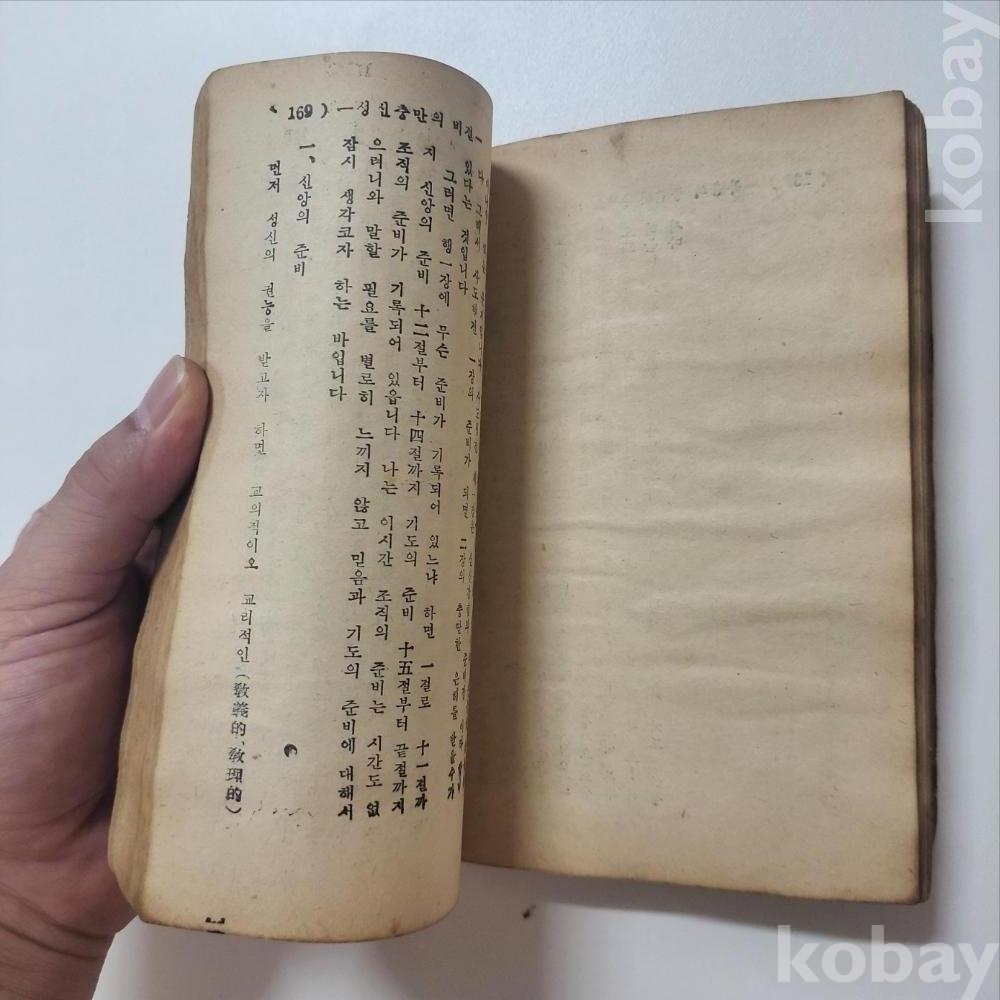 ( 169 ) —성신충만의 비결—
다 그래서 사도행전 一장의 준비가 되면 二장의 충만한 은혜를 받을수가
있다는 것입니다
그러면 행一장에 무슨 준비가 기록되어 있느냐 하면 一절로 十一절까
지 신앙의 준비 十二절부터 十四절까지 기도의 준비 十五절부터 끝절까지
조직의 준비가 기록되어 있읍니다 나는 이시간 조직의 준비는 시간도 없
으려니와 말할 필요를 별로히 느끼지 않고 믿음과 기도의 준비에 대해서
잠시 생각코자 하는 바입니다
一、신앙의 준비
먼저 성신의 권능을 받고자 하면 교의적이오 교리적인(敎義的、敎理的)
kobay
kobay